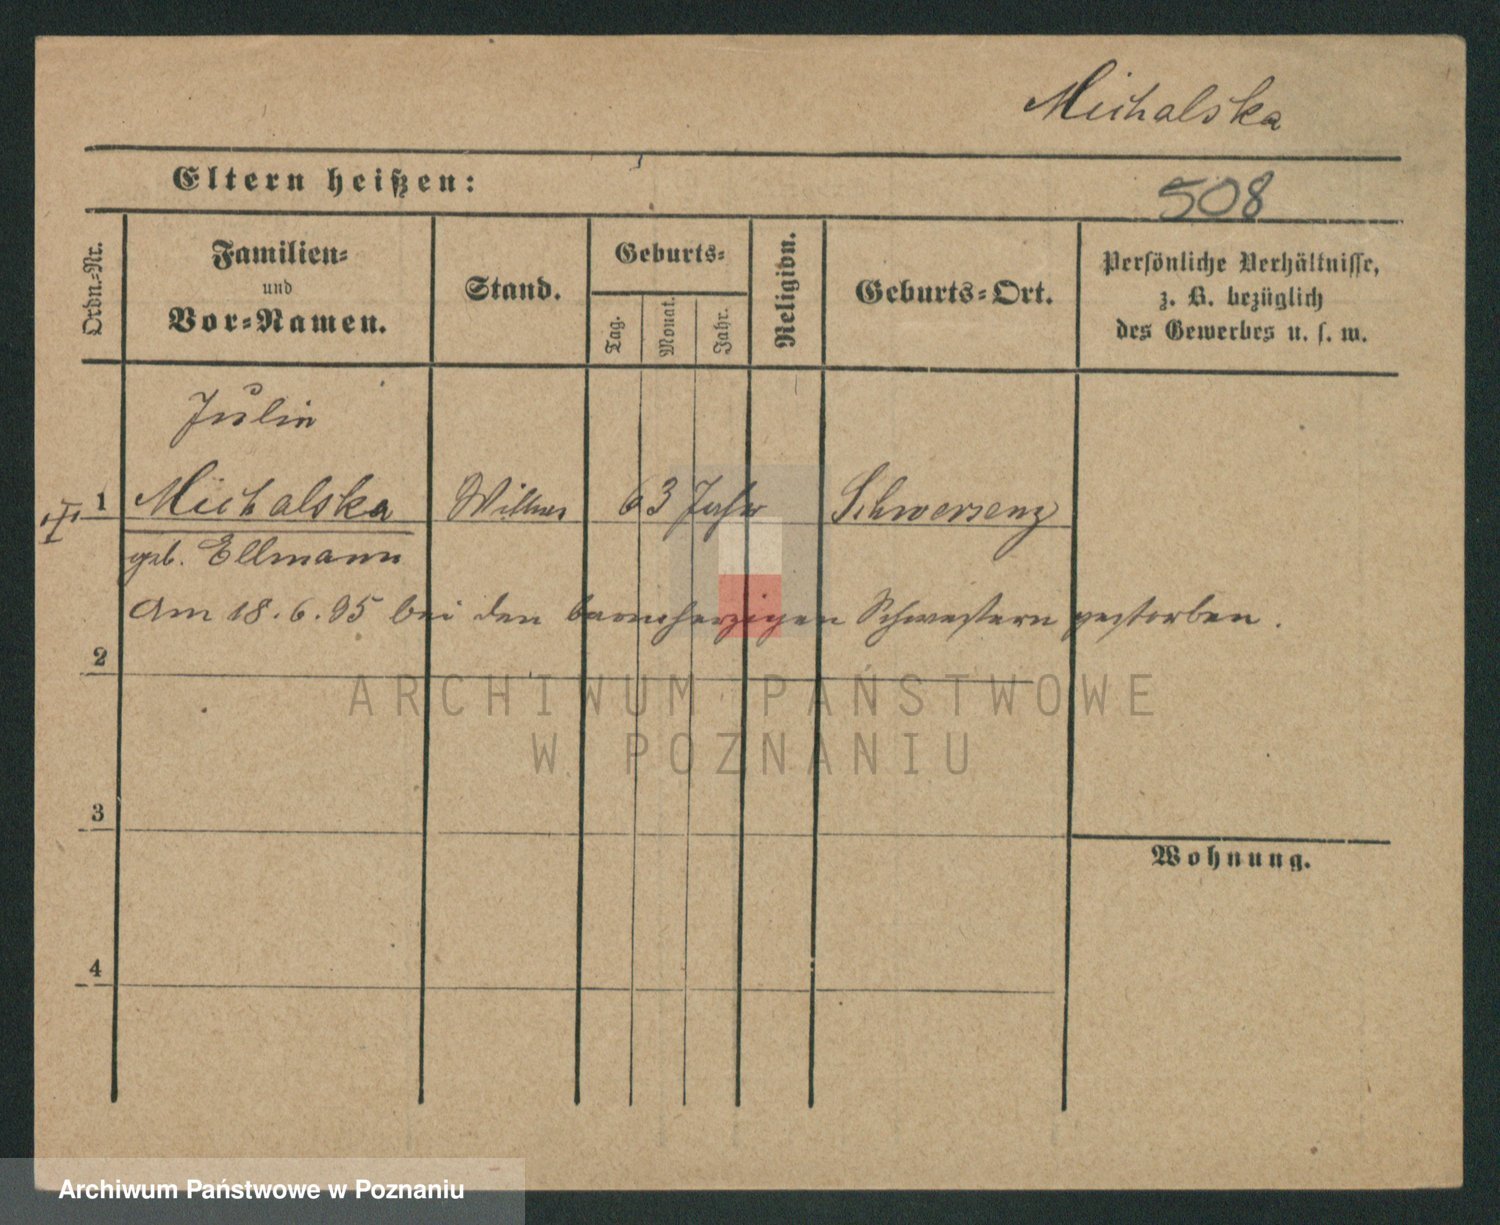 Michalska
Eltern heißen:
508
Ordn.-Nr.
Familien-
und
Vor-Namen.
Stand.
Geburts-
Tag.
Monat.
Jahr.
Religion.
Geburts-Ort.
Persönliche Verhältnisse,
z. B. bezüglich
des Gewerbes u. s. w.
Julie
1 Michalska Wittwe 63 Jahr Schwersenz
geb. Ellmann
Am 18.6.95 bei den barmherzigen Schwestern gestorben.
2
ARCHIWUM PAŃSTWOWE
W POZNANIU
3
Wohnung.
4
Archiwum Państwowe w Poznaniu